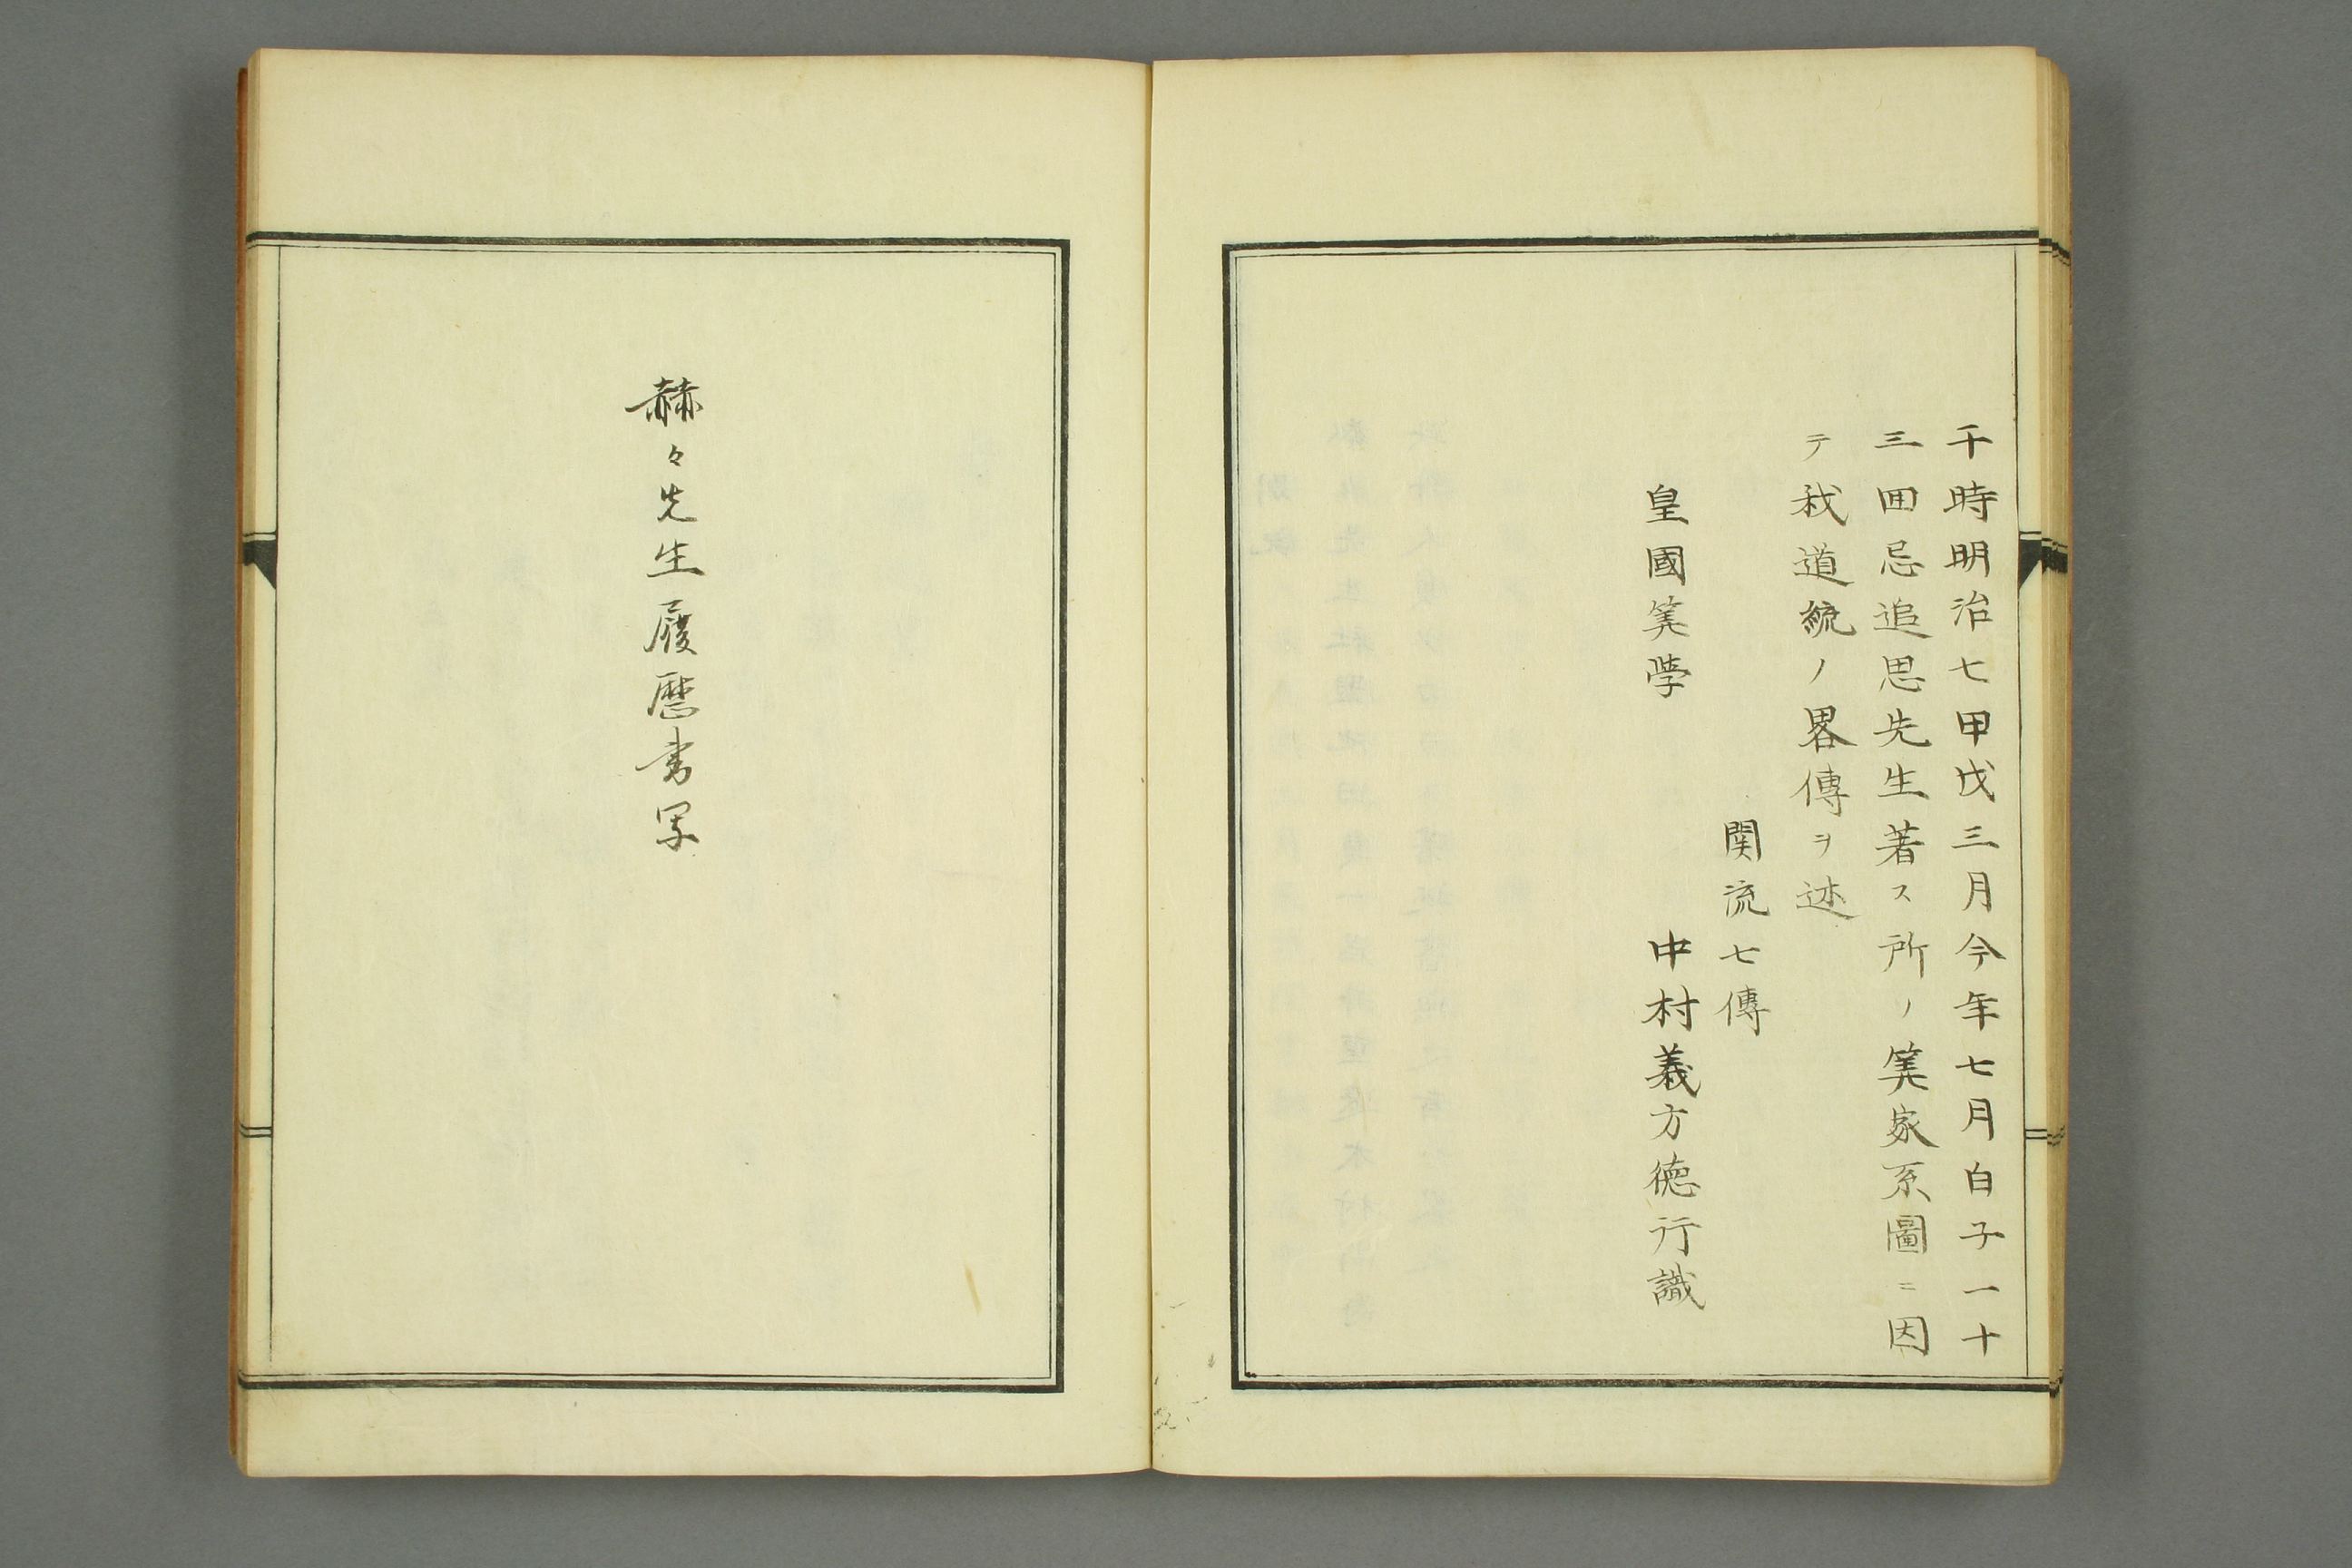 干時明治七甲戌三月今年七月白子一十
三囬忌追思先生著ス所ノ筭家系圖ニ因
テ我道統ノ畧傳ヲ述
関流七傳
皇國筭学　中村義方徳行識
赫々先生履歴書写